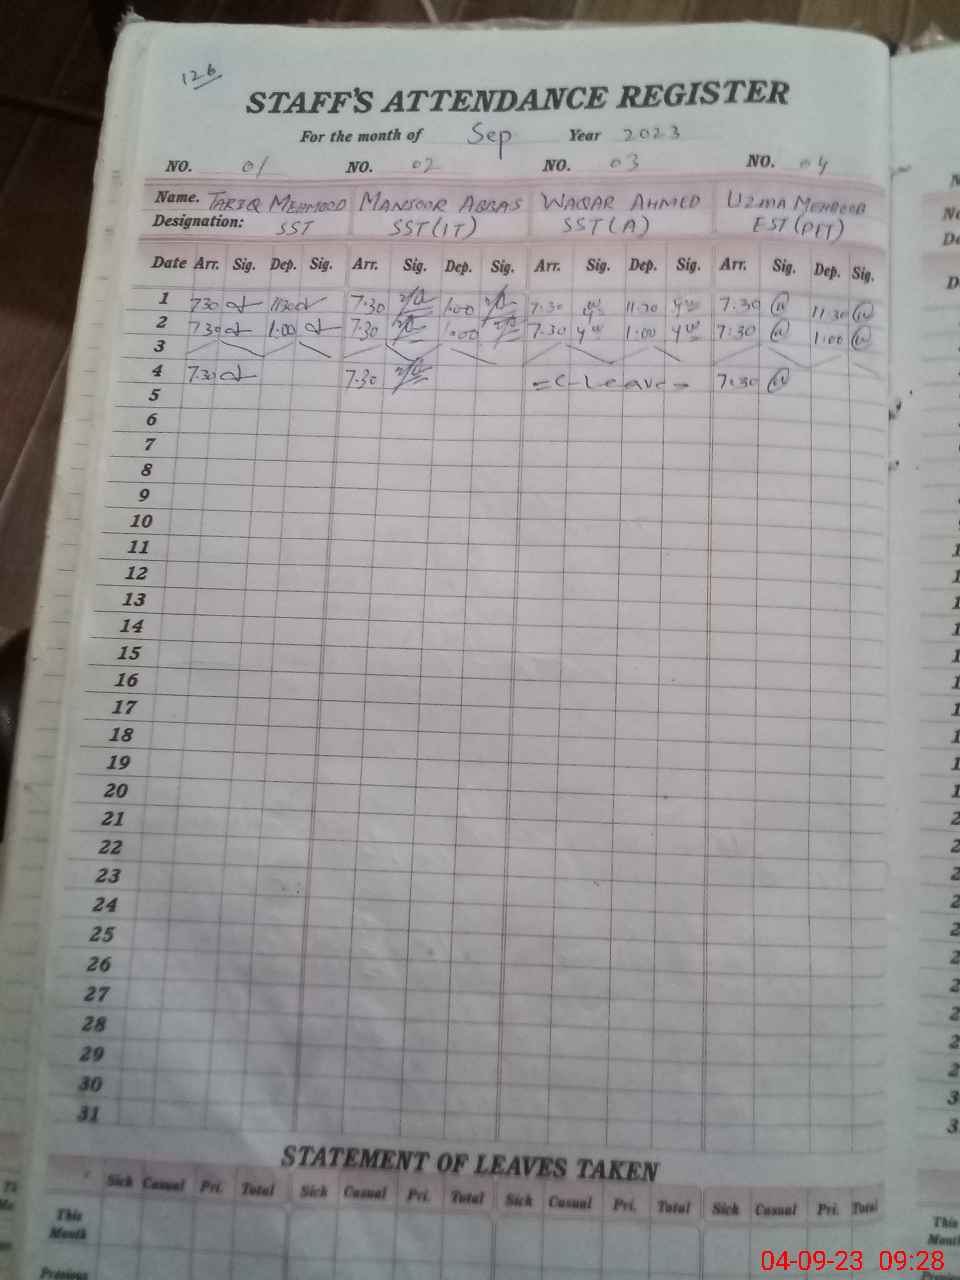 126
STAFF'S ATTENDANCE REGISTER
For the month of Sep Year 2023
NO. 01 NO. 02 NO. 03 NO. 04
Name. TARIQ MEHMOOD MANSOOR ABBAS WAQAR AHMED UZMA MEHBOOB
Designation: SST SST(IT) SST(A) EST(PET)
Date Arr. Sig. Dep. Sig. Arr. Sig. Dep. Sig. Arr. Sig. Dep. Sig. Arr. Sig. Dep. Sig.
1 730 1130 7.30 1.00 7.30 11.30 7.30 11.30
2 730 1.00 7.30 1.00 7.30 1.00 7:30 1.00
3
4 7.30 7.30 =C-Leave= 7.30
5
6
7
8
9
10
11
12
13
14
15
16
17
18
19
20
21
22
23
24
25
26
27
28
29
30
31
STATEMENT OF LEAVES TAKEN
Sick Casual Pri. Total Sick Casual Pri. Total Sick Casual Pri. Total Sick Casual Pri. Total
This
Month
Previous
04-09-23 09:28